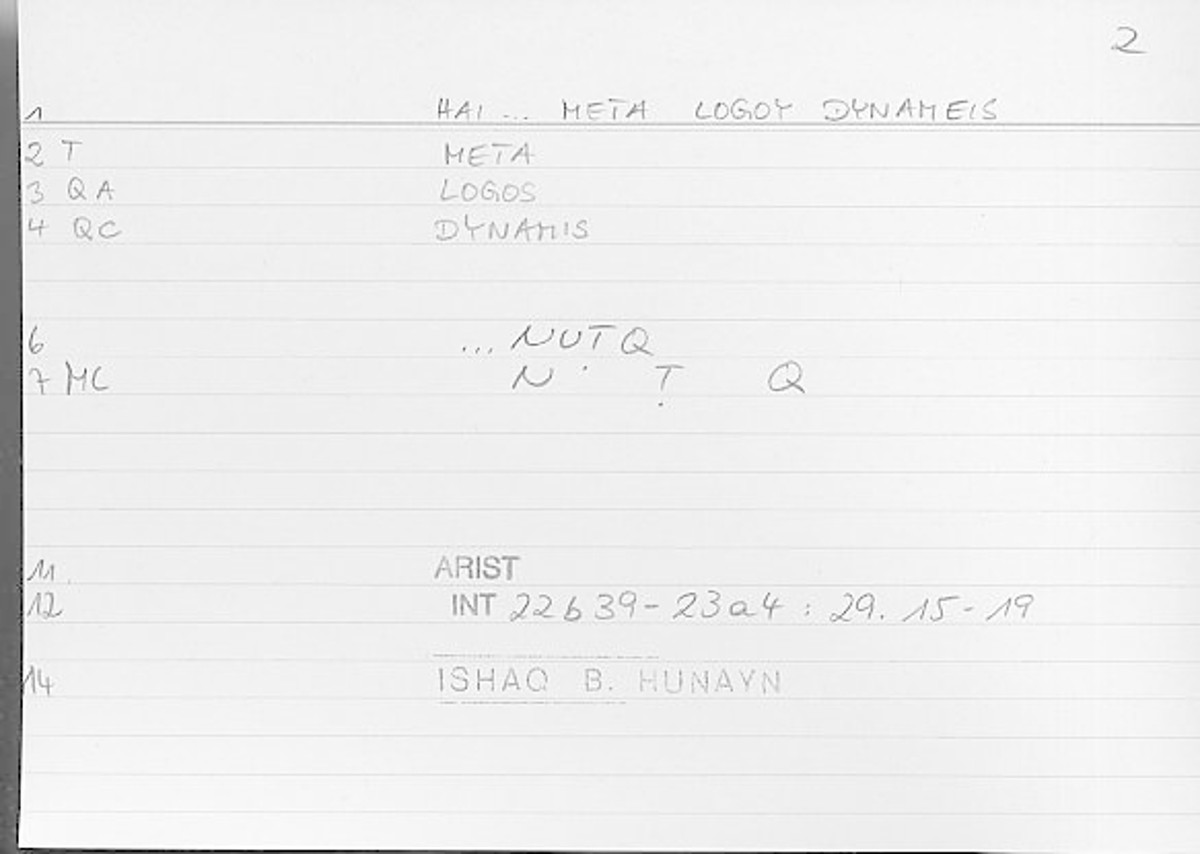 2
1 HAI ... META LOGOY DYNAMEIS
2 T META
3 QA LOGOS
4 QC DYNAMIS
6 ... NUTQ
7 MC N Ṭ Q
11 ARIST
12 INT 22b39-23a4 : 29. 15-19
14 ISHAQ B. HUNAYN